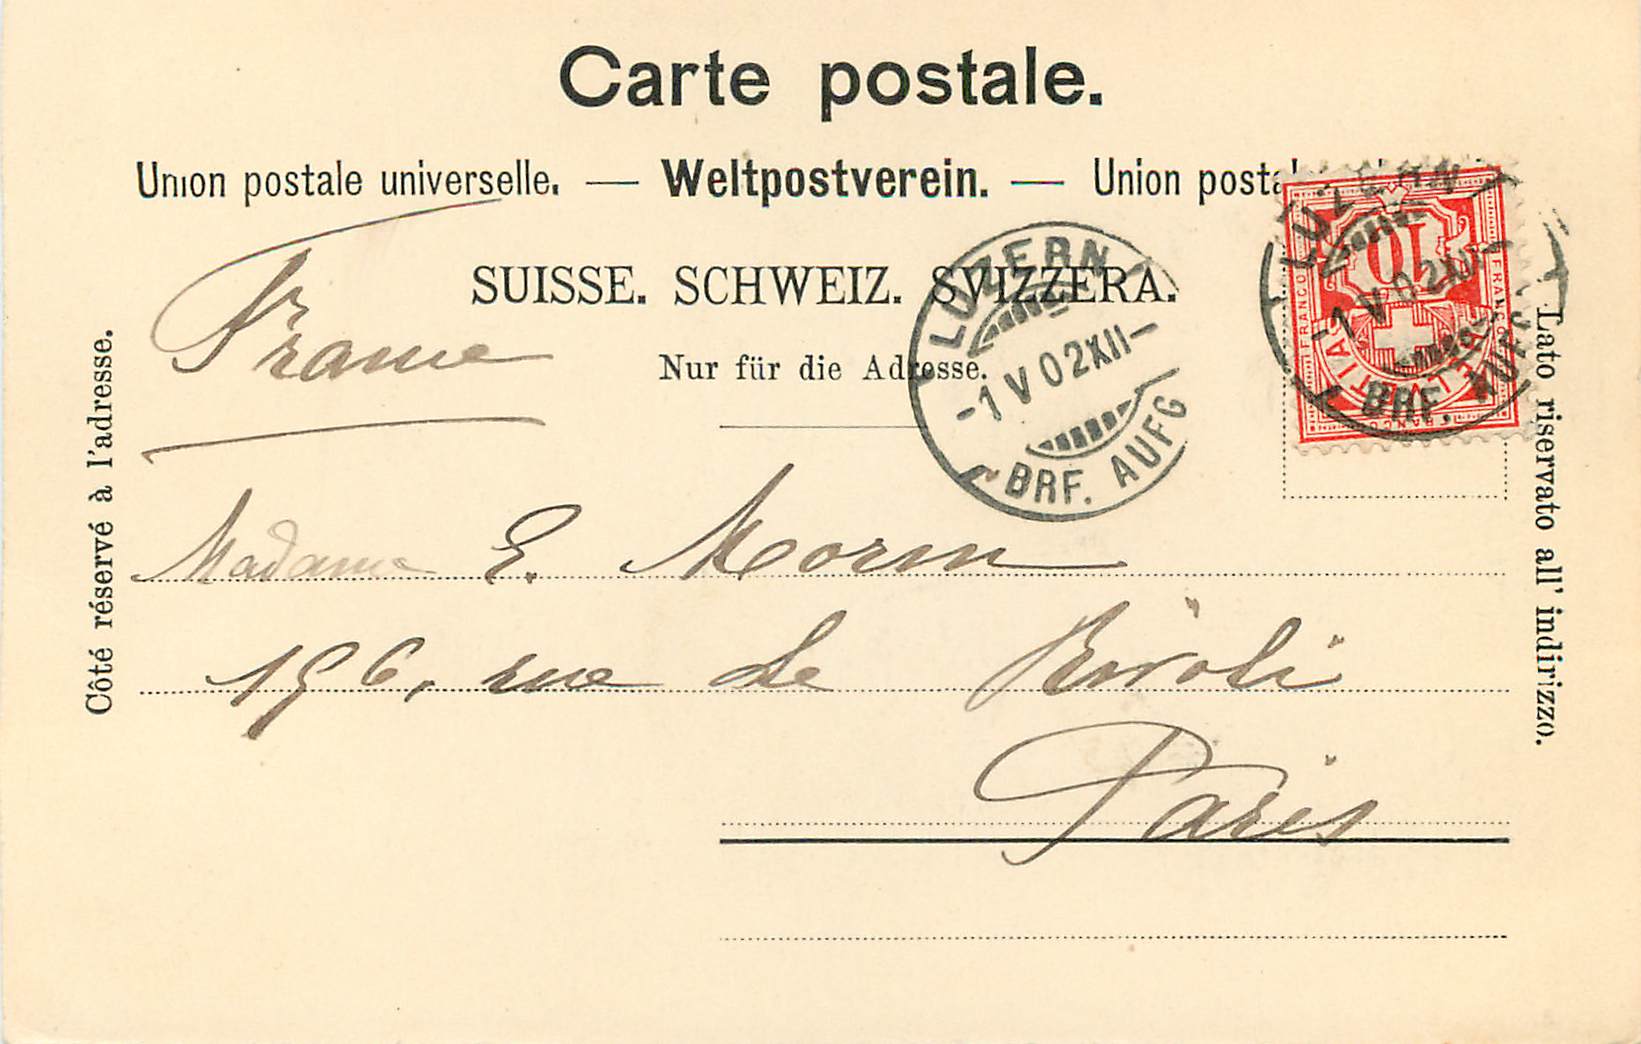 Carte postale.
Union postale universelle. — Weltpostverein. — Union posta
SUISSE. SCHWEIZ. SVIZZERA.
Nur für die Adresse.
France
Madame E. Morin
196, rue de Rivoli
Paris
Côté réservé à l'adresse.
Lato riservato all' indirizzo.
LUZERN
-1 V 02 XII-
BRF. AUFG
LUZERN
-1 V 02 XII
BRF. AUFG.
10
HELVETIA
FRANCO
FRANCO
FRANCO